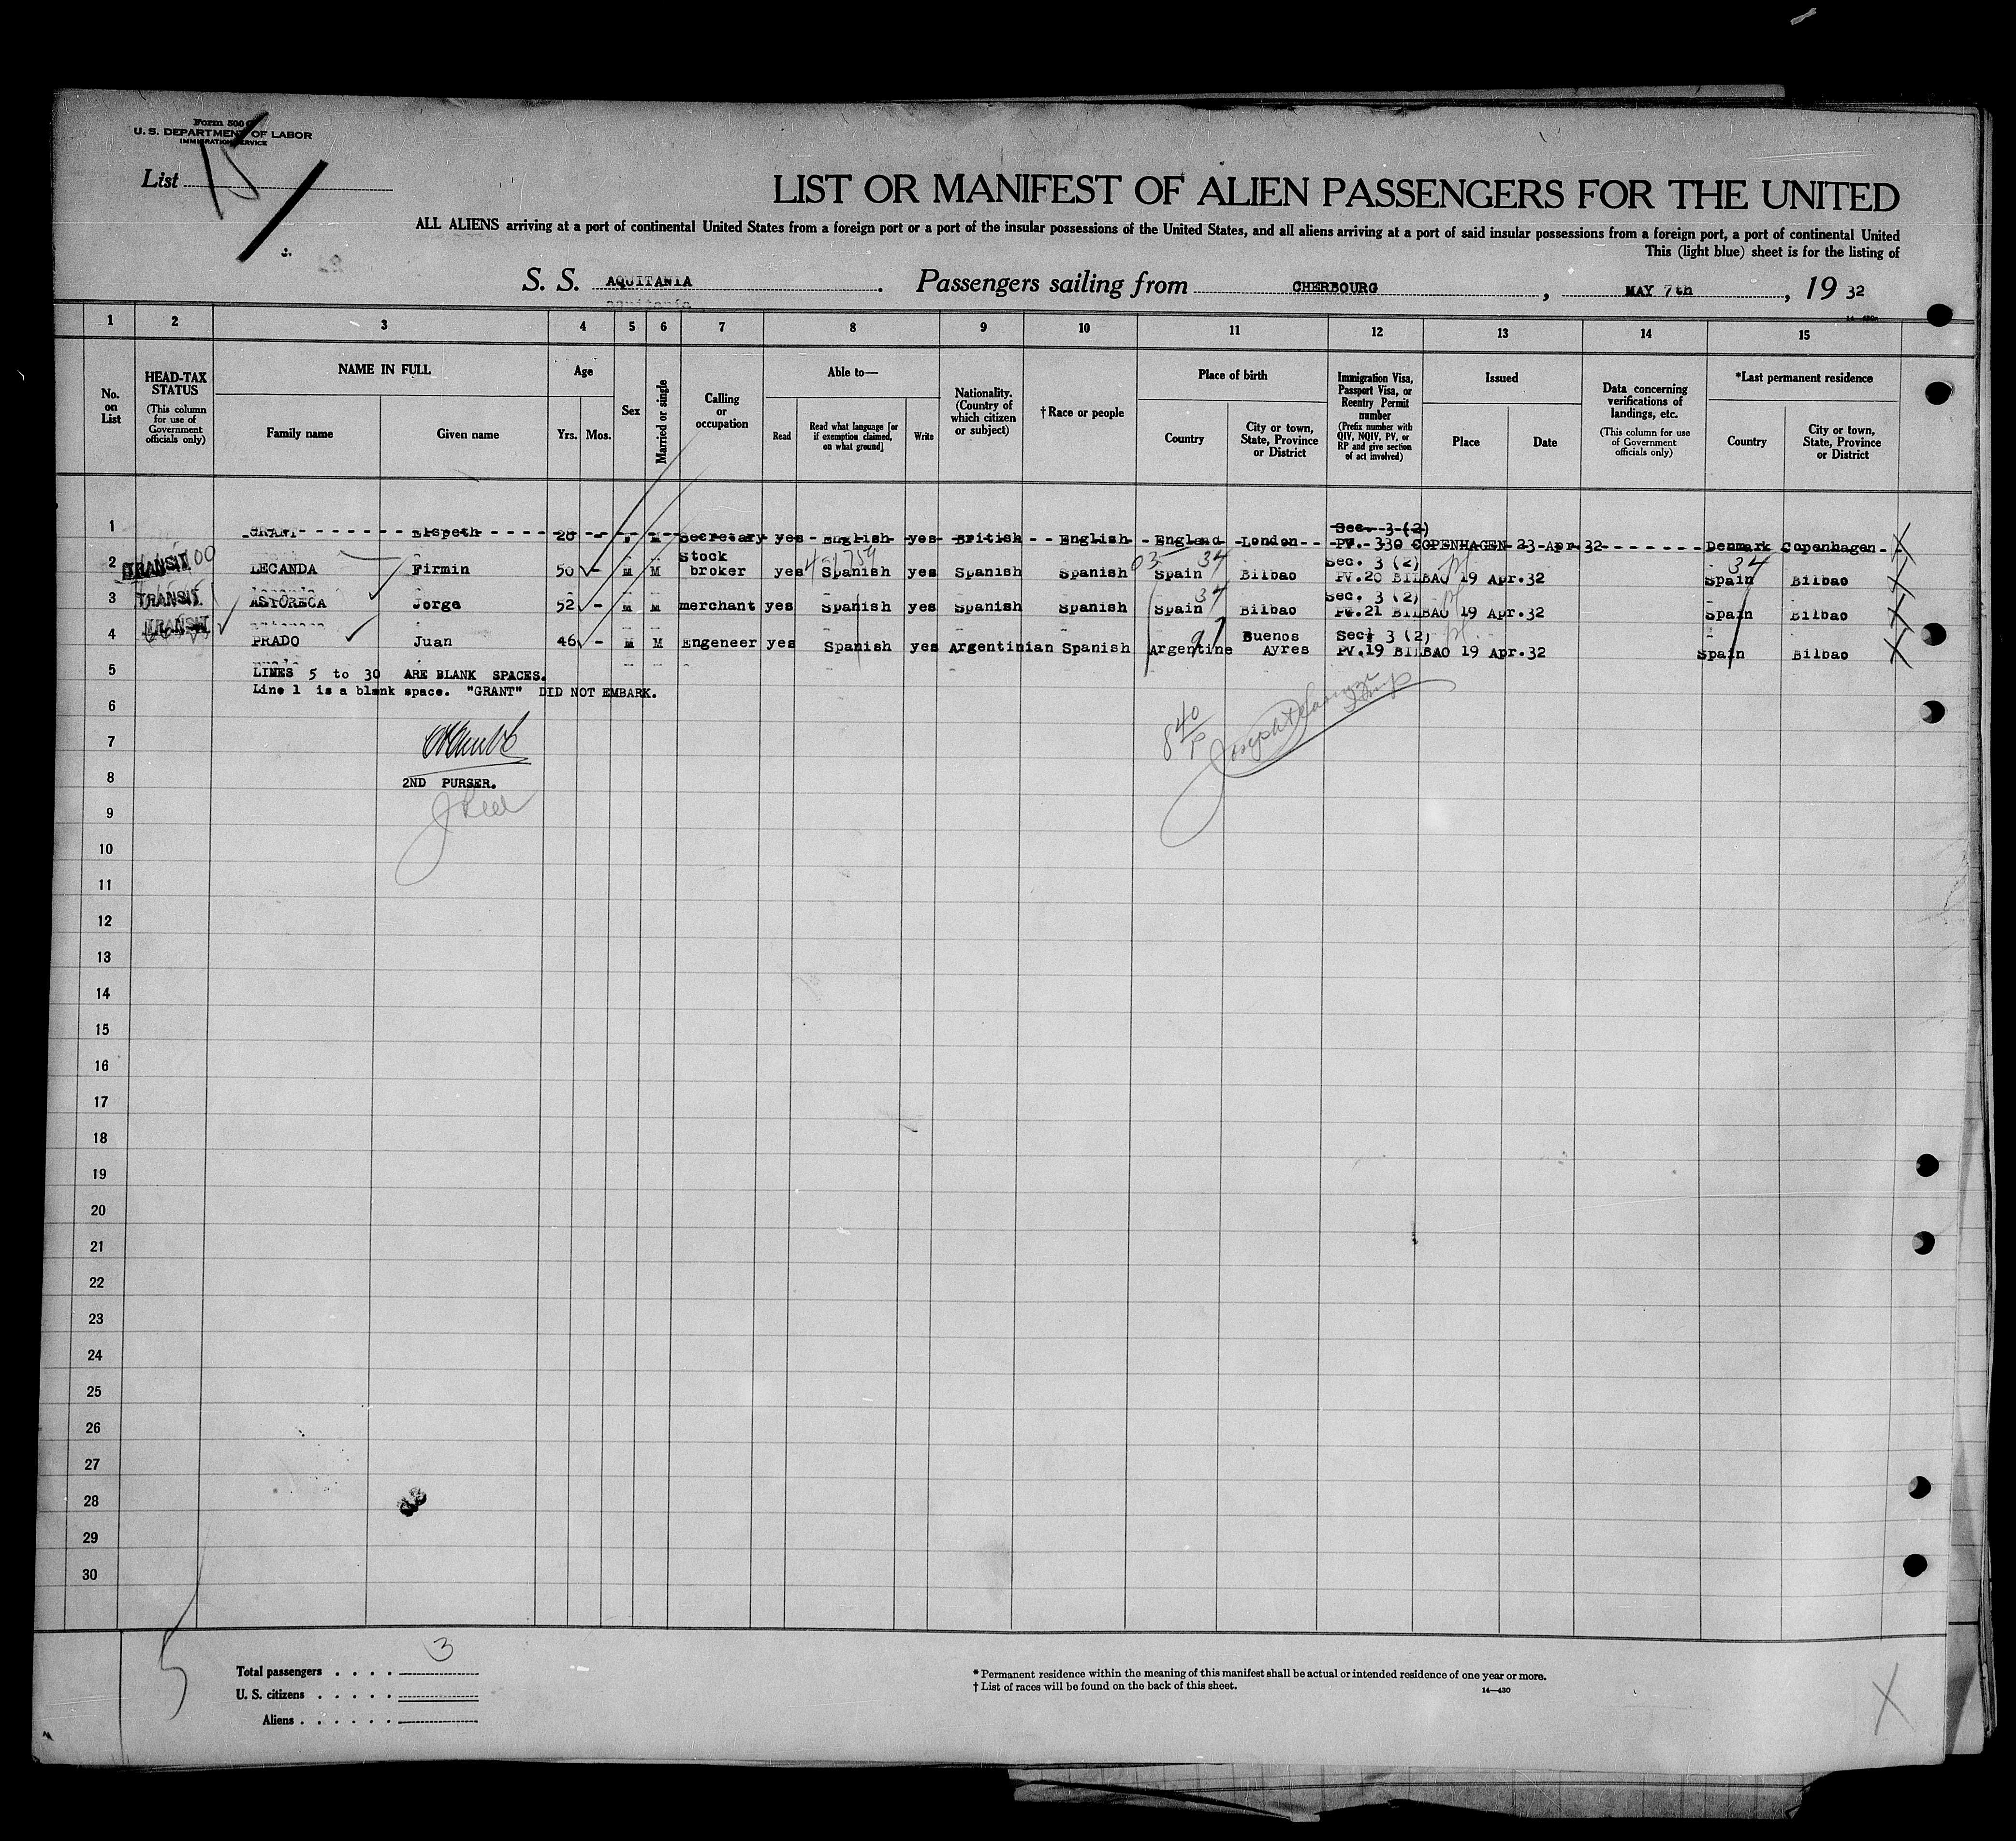 Form 500 C
U. S. DEPARTMENT OF LABOR
IMMIGRATION SERVICE
List 15
LIST OR MANIFEST OF ALIEN PASSENGERS FOR THE UNITED
ALL ALIENS arriving at a port of continental United States from a foreign port or a port of the insular possessions of the United States, and all aliens arriving at a port of said insular possessions from a foreign port, a port of continental United
This (light blue) sheet is for the listing of
S. S. AQUITANIA. Passengers sailing from CHERBOURG, MAY 7th, 19 32
1 2 3 4 5 6 7 8 9 10 11 12 13 14 15
No. on List
HEAD-TAX STATUS
(This column for use of Government officials only)
NAME IN FULL
Family name
Given name
Age
Yrs.
Mos.
Sex
Married or single
Calling or occupation
Able to—
Read
Read what language [or if exemption claimed, on what ground]
Write
Nationality. (Country of which citizen or subject)
†Race or people
Place of birth
Country
City or town, State, Province or District
Immigration Visa, Passport Visa, or Reentry Permit number
(Prefix number with QIV, NQIV, PV, or RP and give section of act involved)
Issued
Place
Date
Data concerning verifications of landings, etc.
(This column for use of Government officials only)
*Last permanent residence
Country
City or town, State, Province or District
1 GRANT Elspeth 26 - Secretary yes English yes British English England London Sec. 3 (2) PV. 330 COPENHAGEN 23 Apr 32 Denmark Copenhagen
2 TRANSIT LECANDA Firmin 50 - M M Stock broker yes Spanish yes Spanish Spanish Spain Bilbao Sec. 3 (2) PV.20 BILBAO 19 Apr.32 Spain Bilbao
3 TRANSIT ASTORECA Jorge 52 - M M merchant yes Spanish yes Spanish Spanish Spain Bilbao Sec. 3 (2) PV.21 BILBAO 19 Apr.32 Spain Bilbao
4 TRANSIT PRADO Juan 46 - M M Engeneer yes Spanish yes Argentinian Spanish Argentine Buenos Ayres Sec. 3 (2) PV.19 BILBAO 19 Apr.32 Spain Bilbao
5 LINES 5 to 30 ARE BLANK SPACES.
Line 1 is a blank space. "GRANT" DID NOT EMBARK.
6
7
8 2ND PURSER.
9
10
11
12
13
14
15
16
17
18
19
20
21
22
23
24
25
26
27
28
29
30
Total passengers . . . . 3
U. S. citizens . . . . .
Aliens . . . . . .
* Permanent residence within the meaning of this manifest shall be actual or intended residence of one year or more.
† List of races will be found on the back of this sheet.
14—430